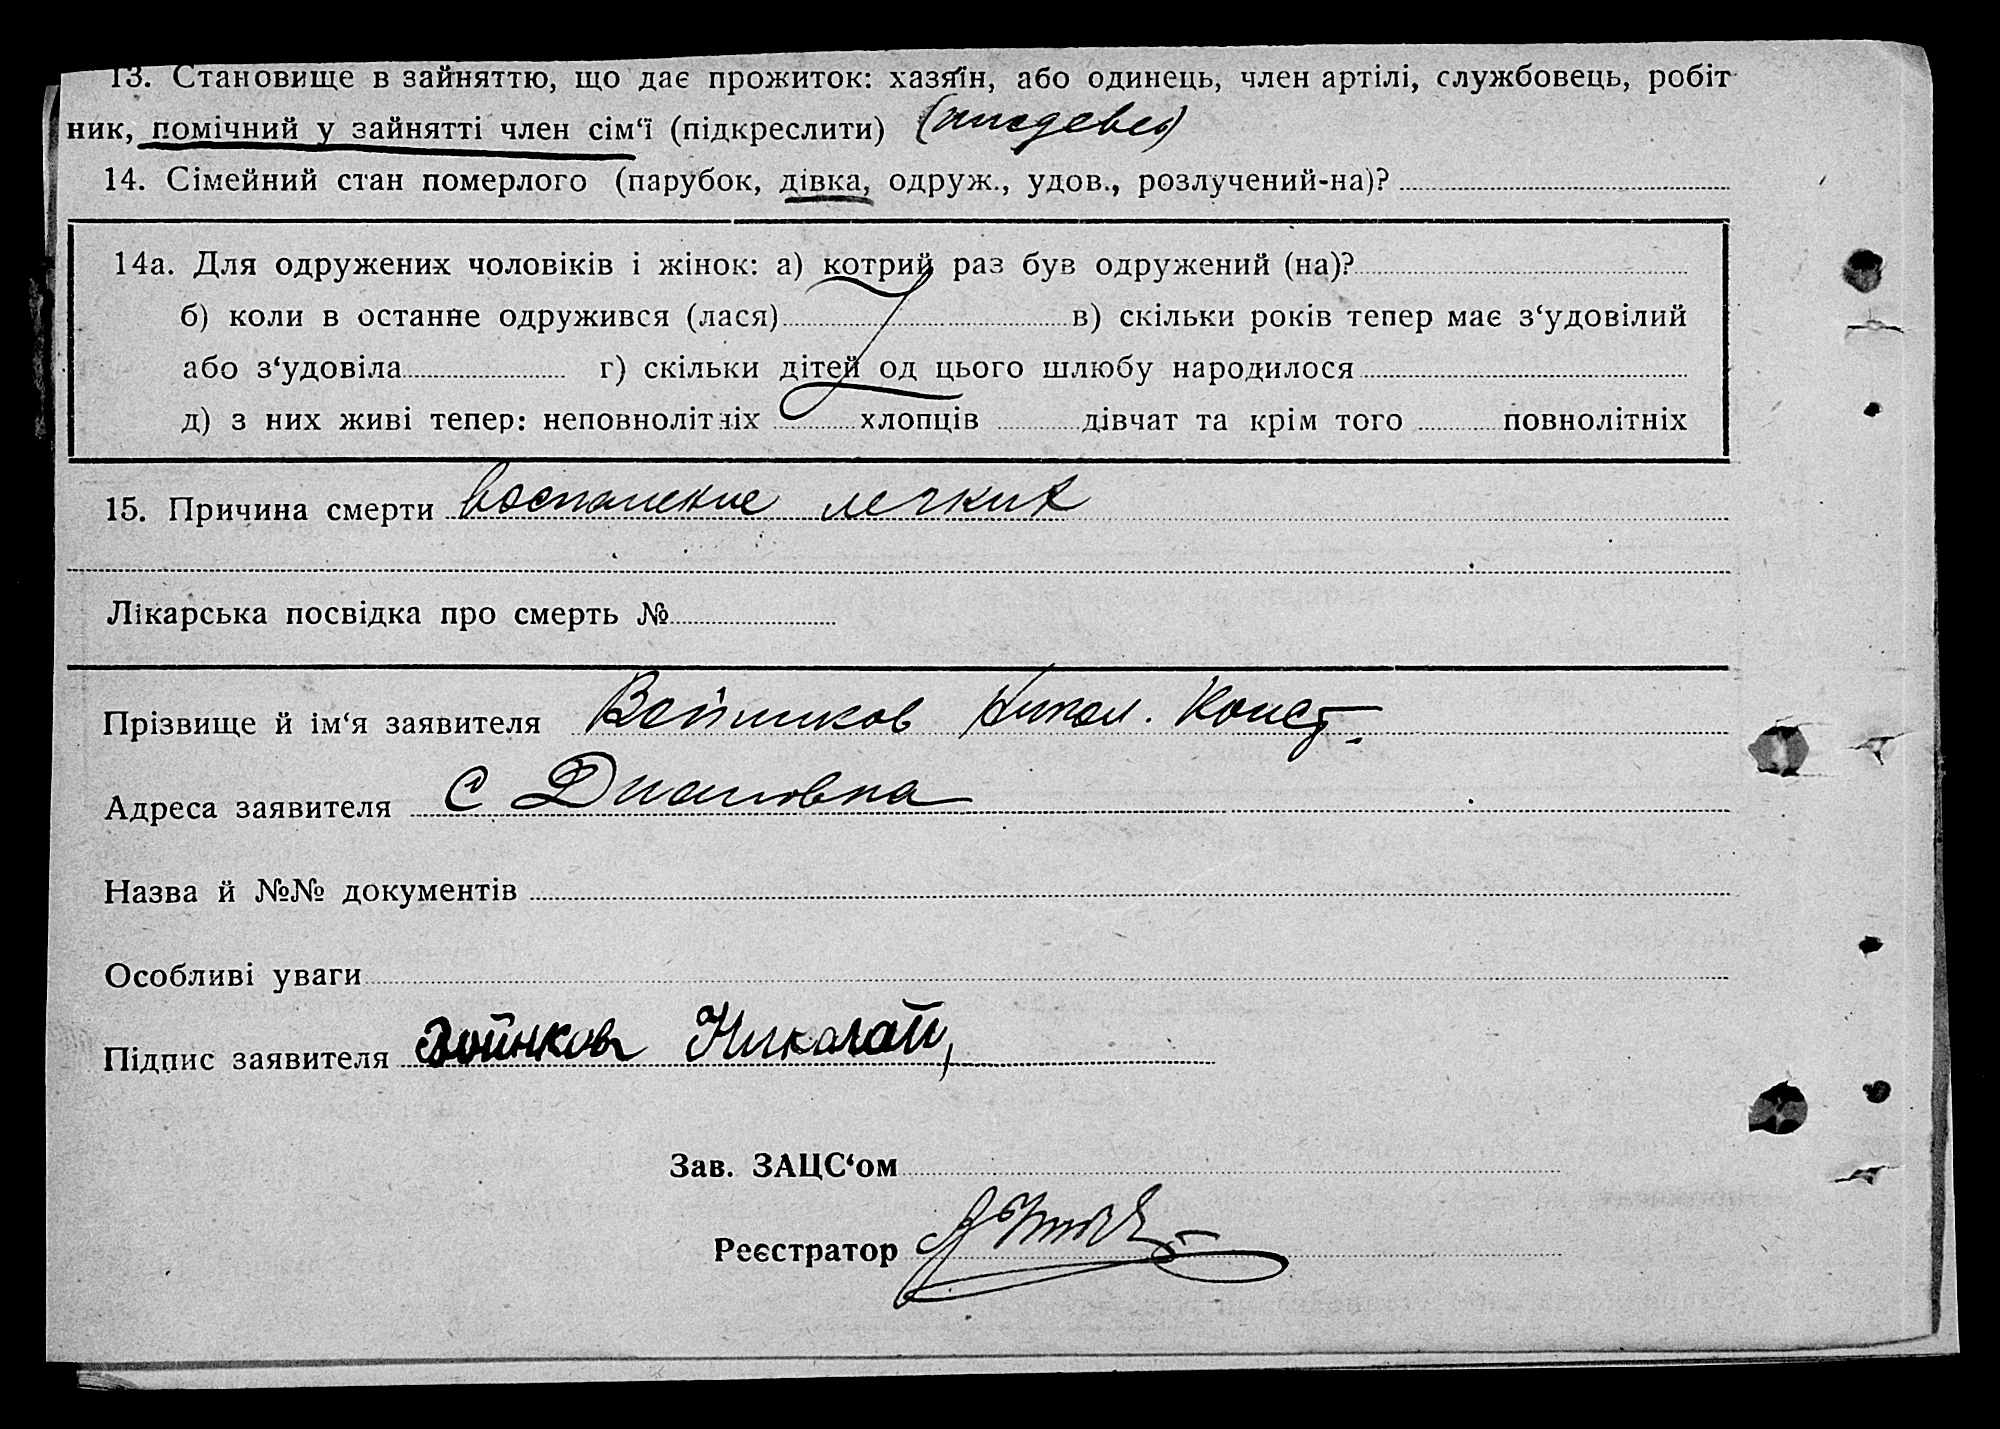 13. Становище в зайняттю, що дає прожиток: хазяїн, або одинець, член артілі, службовець, робіт
ник, помічний у зайнятті член сім‘ї (підкреслити)
14. Сімейний стан померлого (парубок, дівка, одруж., удов., розлучений-на)?
14а. Для одружених чоловіків і жінок: а) котрий раз був одружений (на)?
б) коли в останнє одружився (лася) в) скільки років тепер має з‘удовілий
або з‘удовіла г) скільки дітей од цього шлюбу народилося
д) з них живі тепер: неповнолітніх хлопців дівчат та крім того повнолітніх
15. Причина смерти воспаление легких
Лікарська посвідка про смерть №
Прізвище й ім‘я заявителя Войников Никол. Конст.
Адреса заявителя С Диановка
Назва й №№ документів
Особливі уваги
Підпис заявителя Войнков Николай,
Зав. ЗАЦС‘ом
Реєстратор